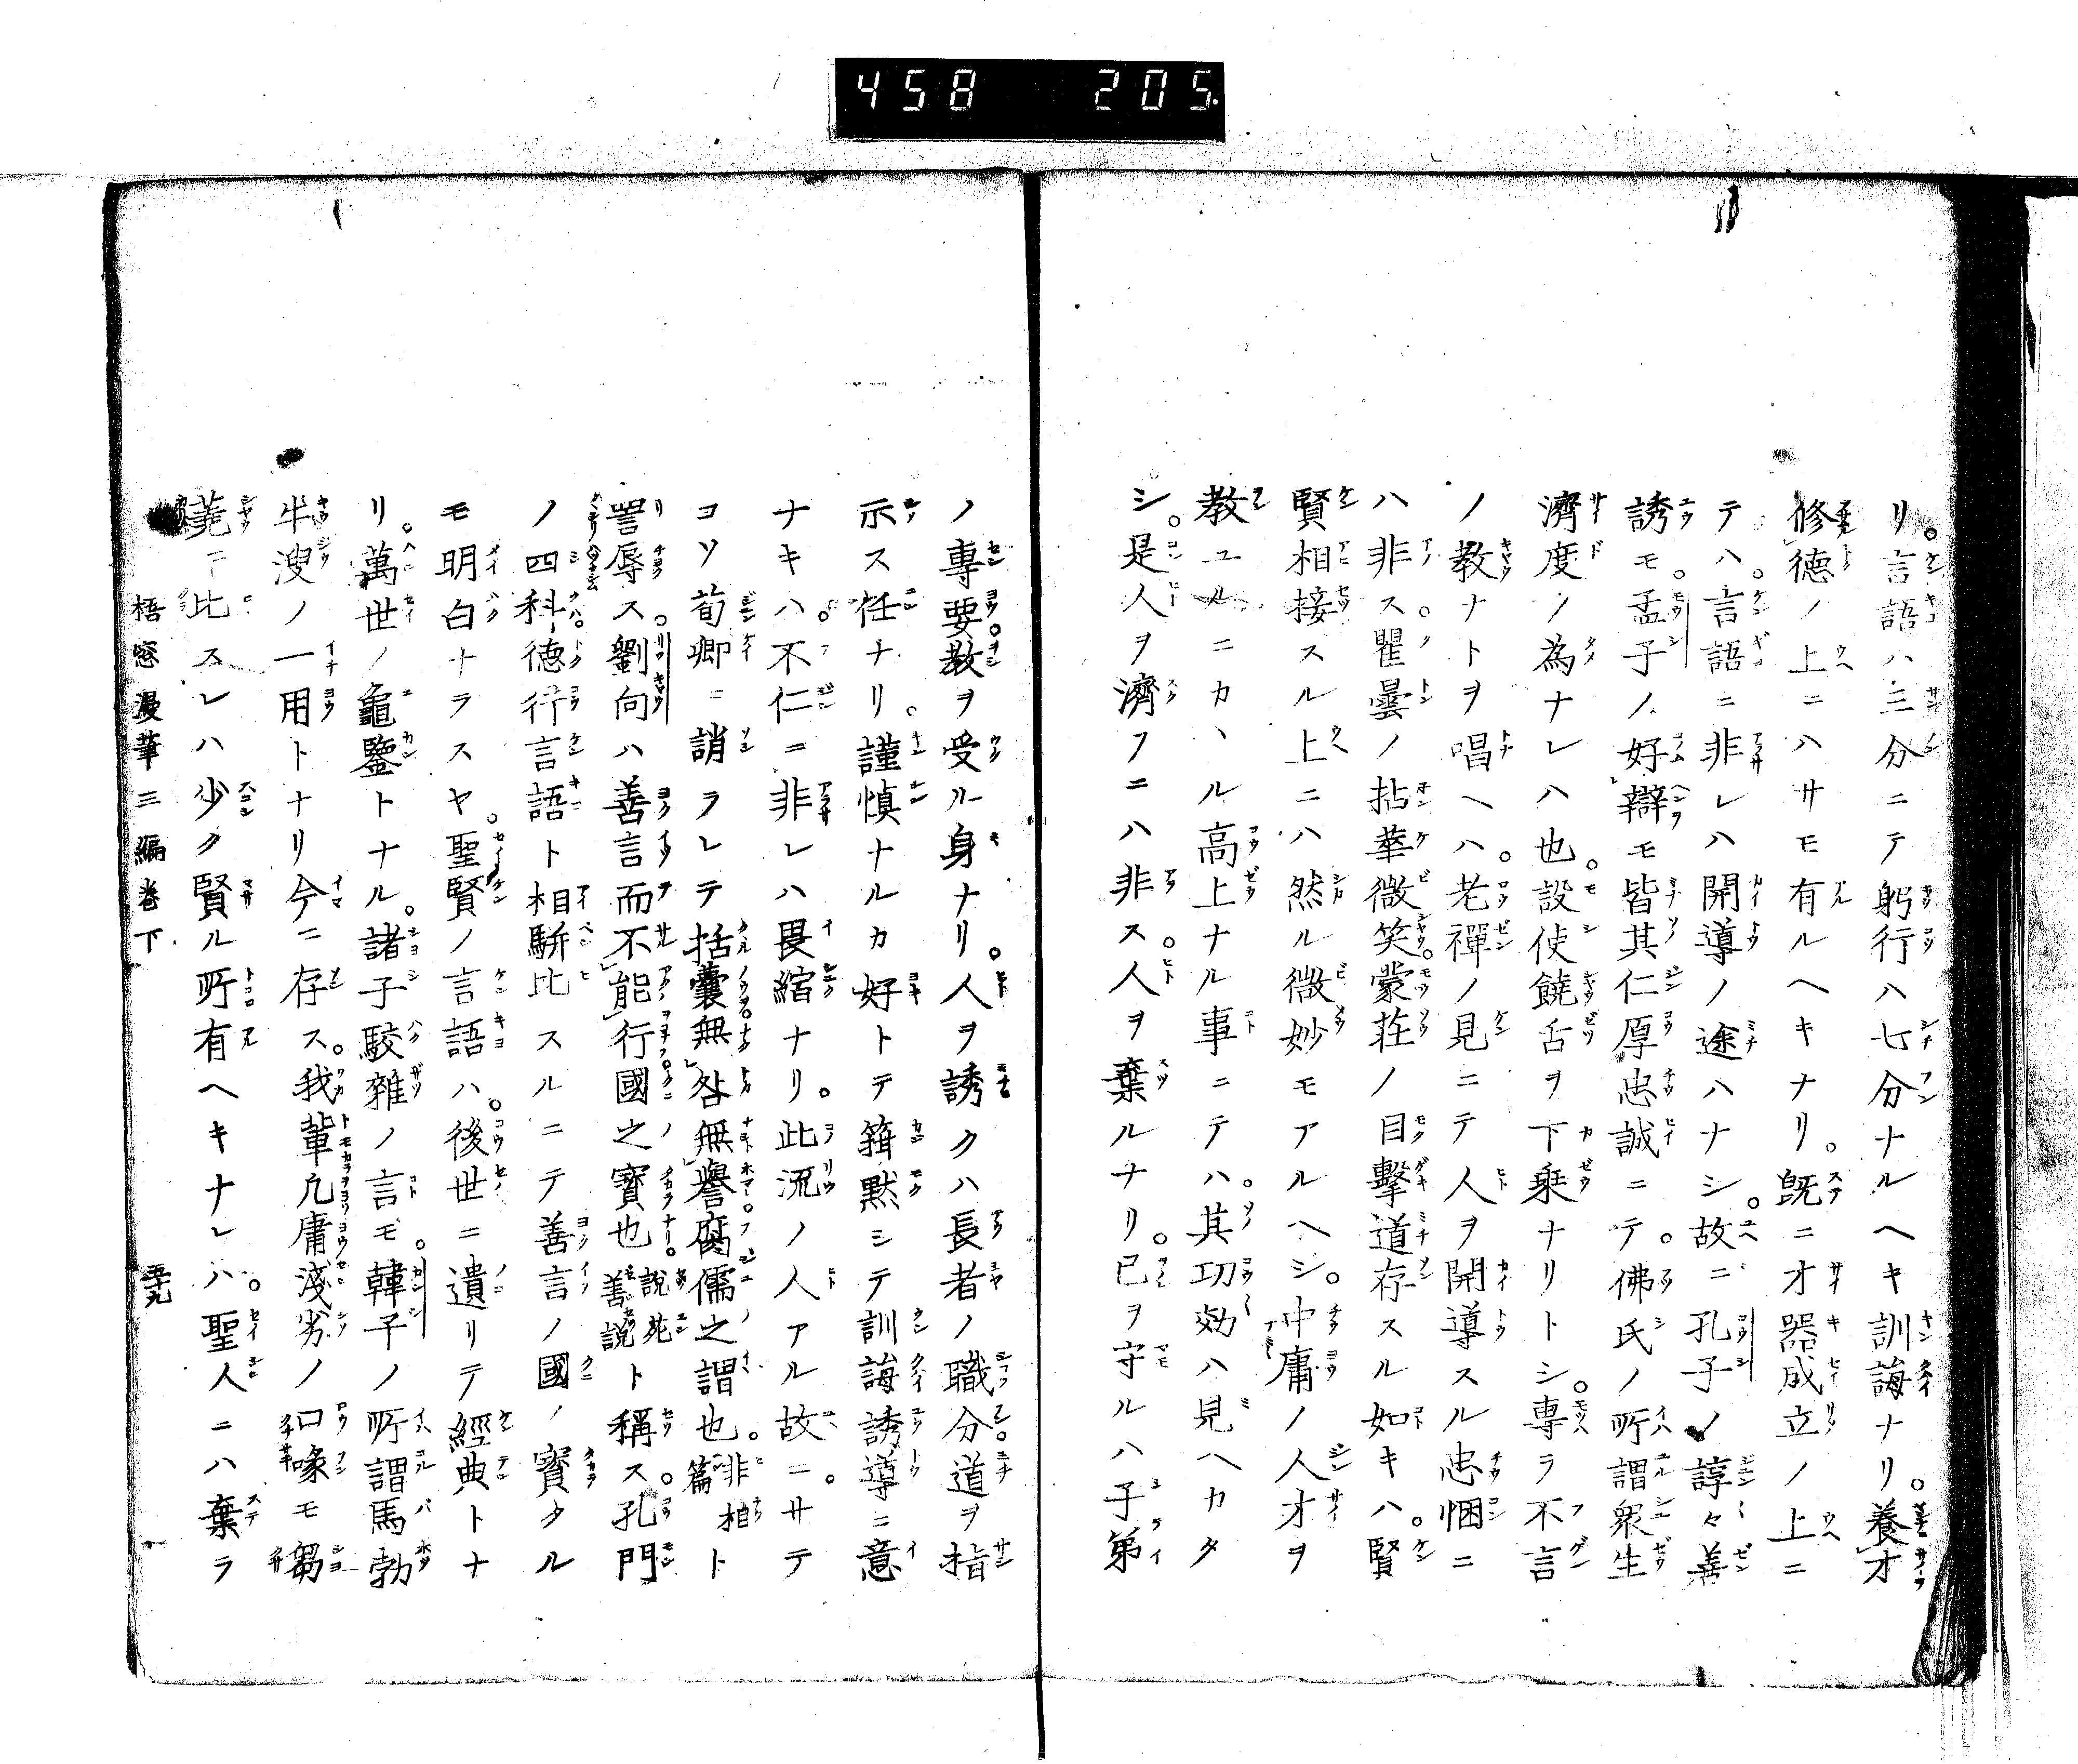 458 205.
リ。言語ハ三分ニテ躬行ハ七分ナルヘキ訓誨ナリ。養才
修德ノ上ニハサモ有ルヘキナリ。既ニ才器成立ノ上ニ
テハ。言語ニ非レハ開導ノ途ハナシ。故ニ孔子ノ諄々善
誘モ。孟子ノ好辯モ皆其仁厚忠誠ニテ。佛氏ノ所謂衆生
濟度ノ為ナレハ也。設使饒舌ヲ下乗ナリトシ。専ラ不言
ノ教ナトヲ唱ヘハ。老禪ノ見ニテ人ヲ開導スル忠悃ニ
ハ非ス。瞿曇ノ拈華微笑。蒙荘ノ目擊道存スル如キハ。賢
賢相接スル上ニハ然ル微妙モアルヘシ。中庸ノ人才ヲ
教ユルニカヽル高上ナル事ニテハ。其功効ハ見ヘカタ
シ。是人ヲ濟フニハ非ス。人ヲ棄ルナリ。已ヲ守ルハ子第
ノ專要。教ヲ受ル身ナリ。人ヲ誘クハ長者ノ職分。道ヲ指
示ス任ナリ。謹慎ナルカ好トテ箝黙シテ訓誨誘導ニ意
ナキハ。不仁ニ非レハ畏縮ナリ。此流ノ人アル故ニ。サテ
コソ荀卿ニ誚ラレテ括囊無咎無譽腐儒之謂也。非相篇ト
詈辱ス。劉向ハ善言而不能行國之寳也説苑善説ト稱ス。孔門
ノ四科。德行言語ト相騈比スルニテ善言ノ國ノ寳タル
モ明白ナラスヤ。聖賢ノ言語ハ。後世ニ遺リテ經典トナ
リ。萬世ノ龜鑒トナル。諸子駁雜ノ言モ。韓子ノ所謂馬勃
牛溲ノ一用トナリ今ニ存ス。我輩凢庸淺劣ノ口喙モ芻
蕘ニ比スレハ少ク賢ル所有ヘキナレハ。聖人ニハ棄ラ
梧窓漫筆三編卷下 五十九